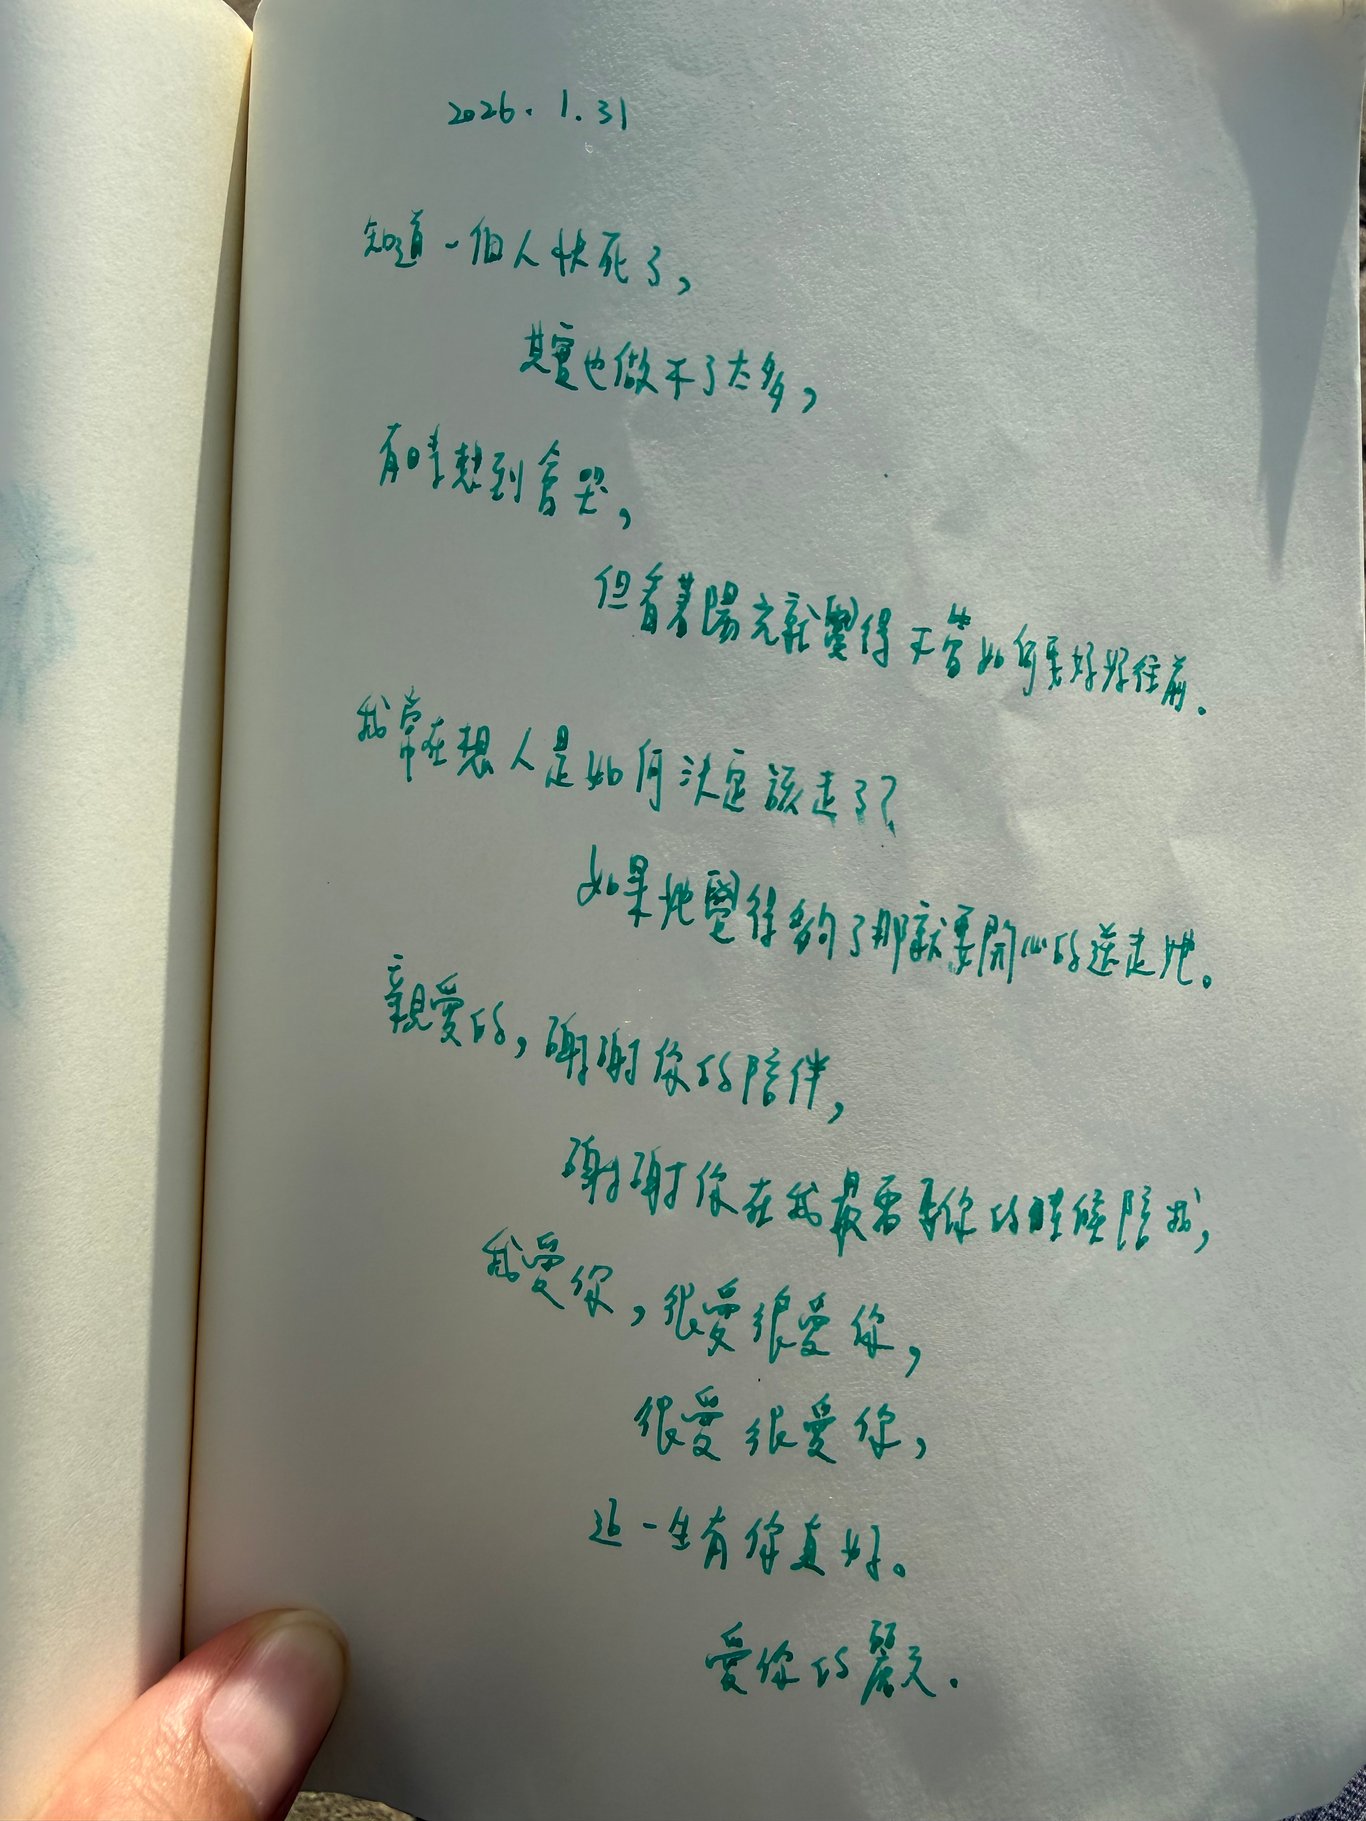 2026.1.31
知道一個人快死了,
其實也做不了太多,
有時想到會哭,
但看著陽光就覺得不管如何要好好往前。
我常在想人是如何決定該走了?
如果她覺得夠了那就要開心的送走她。
親愛的,謝謝你的陪伴,
謝謝你在我最需要你的時候陪我,
我愛你,很愛很愛你,
很愛很愛你,
這一生有你真好。
愛你的麗文.